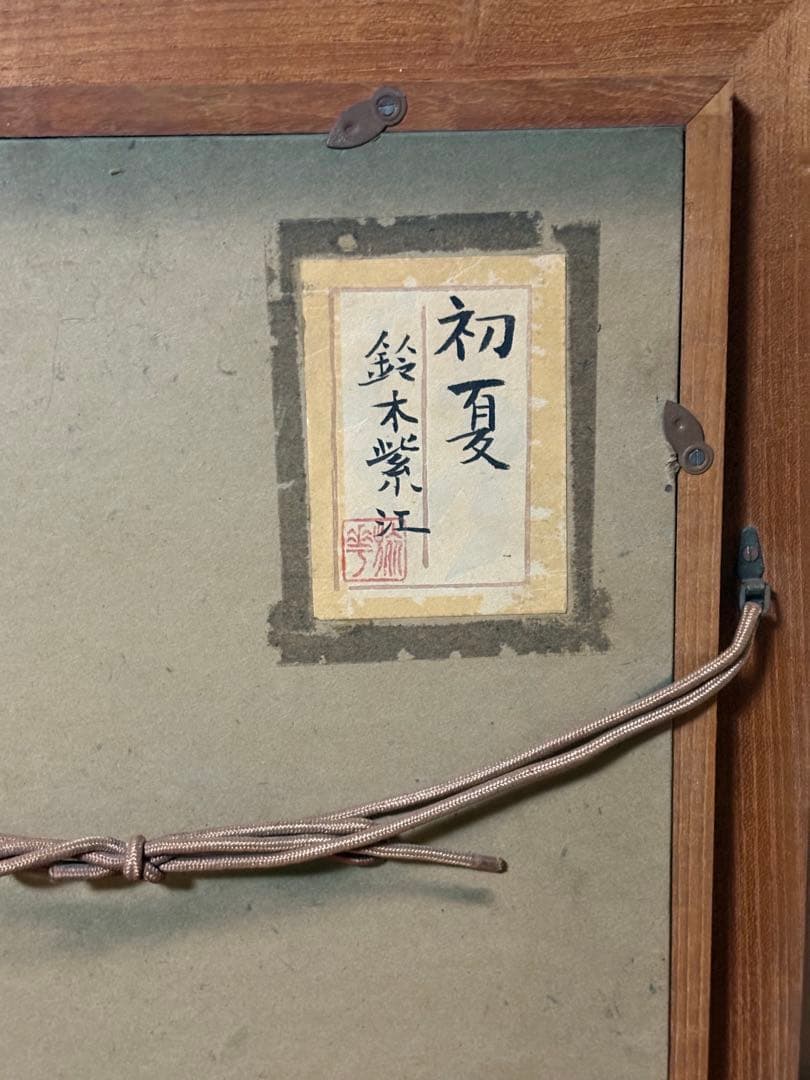 初夏
鈴木紫江